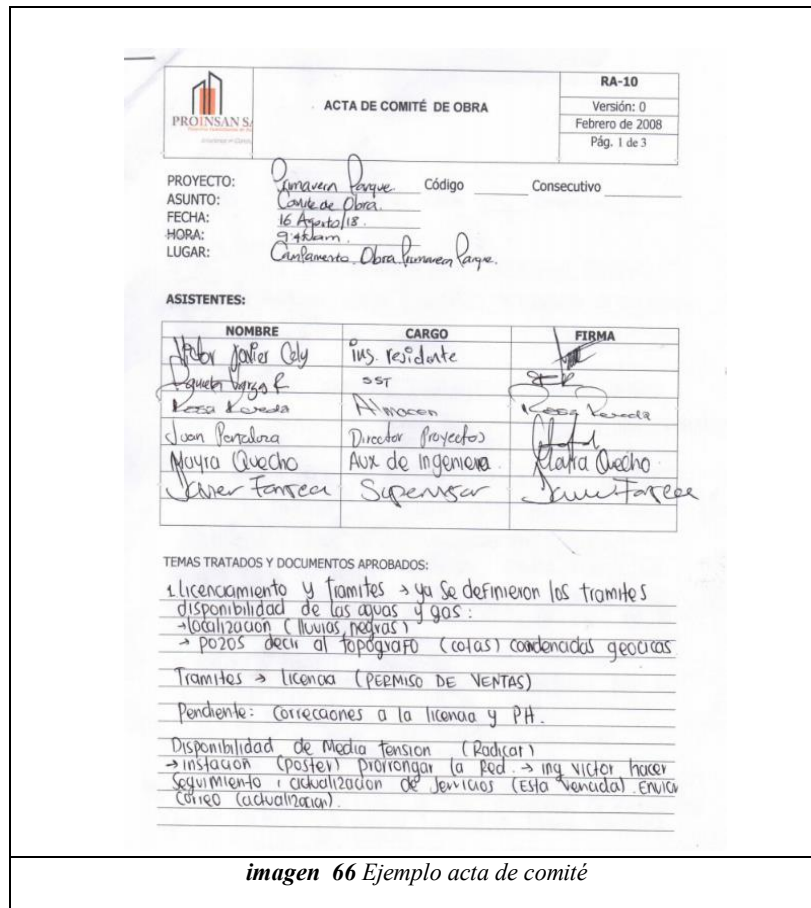 PROINSAN SA
ACTA DE COMITÉ DE OBRA
RA-10
Versión: 0
Febrero de 2008
Pág. 1 de 3
PROYECTO: Primavera Parque. Código Consecutivo
ASUNTO: Comite de Obra.
FECHA: 16 Agosto/18.
HORA: am.
LUGAR: Campamento Obra Primavera Parque.
ASISTENTES:
NOMBRE CARGO FIRMA
Javier Cely ing. residente
Vargas R SST
Rosa Almacen Rosa
Juan Director Proyectos
Mayra Quecho Aux de Ingenieria. Mayra Quecho
Javier Fonseca Supervisor Javier Fonseca
TEMAS TRATADOS Y DOCUMENTOS APROBADOS:
1. licenciamiento y Tramites → ya se definieron los tramites
disponibilidad de las aguas y gas:
→ localización (lluvias, negras)
→ pozos decir al topógrafo (cotas)
Tramites → licencia (PERMISO DE VENTAS)
Pendiente: correcciones a la licencia y PH.
Disponibilidad de Media tension (Radicar)
→ (poster) la Red. → ing victor hacer
Seguimiento actualizacion de servicios (Esta vencida). Enviar
correo (actualizacion).
imagen 66 Ejemplo acta de comité